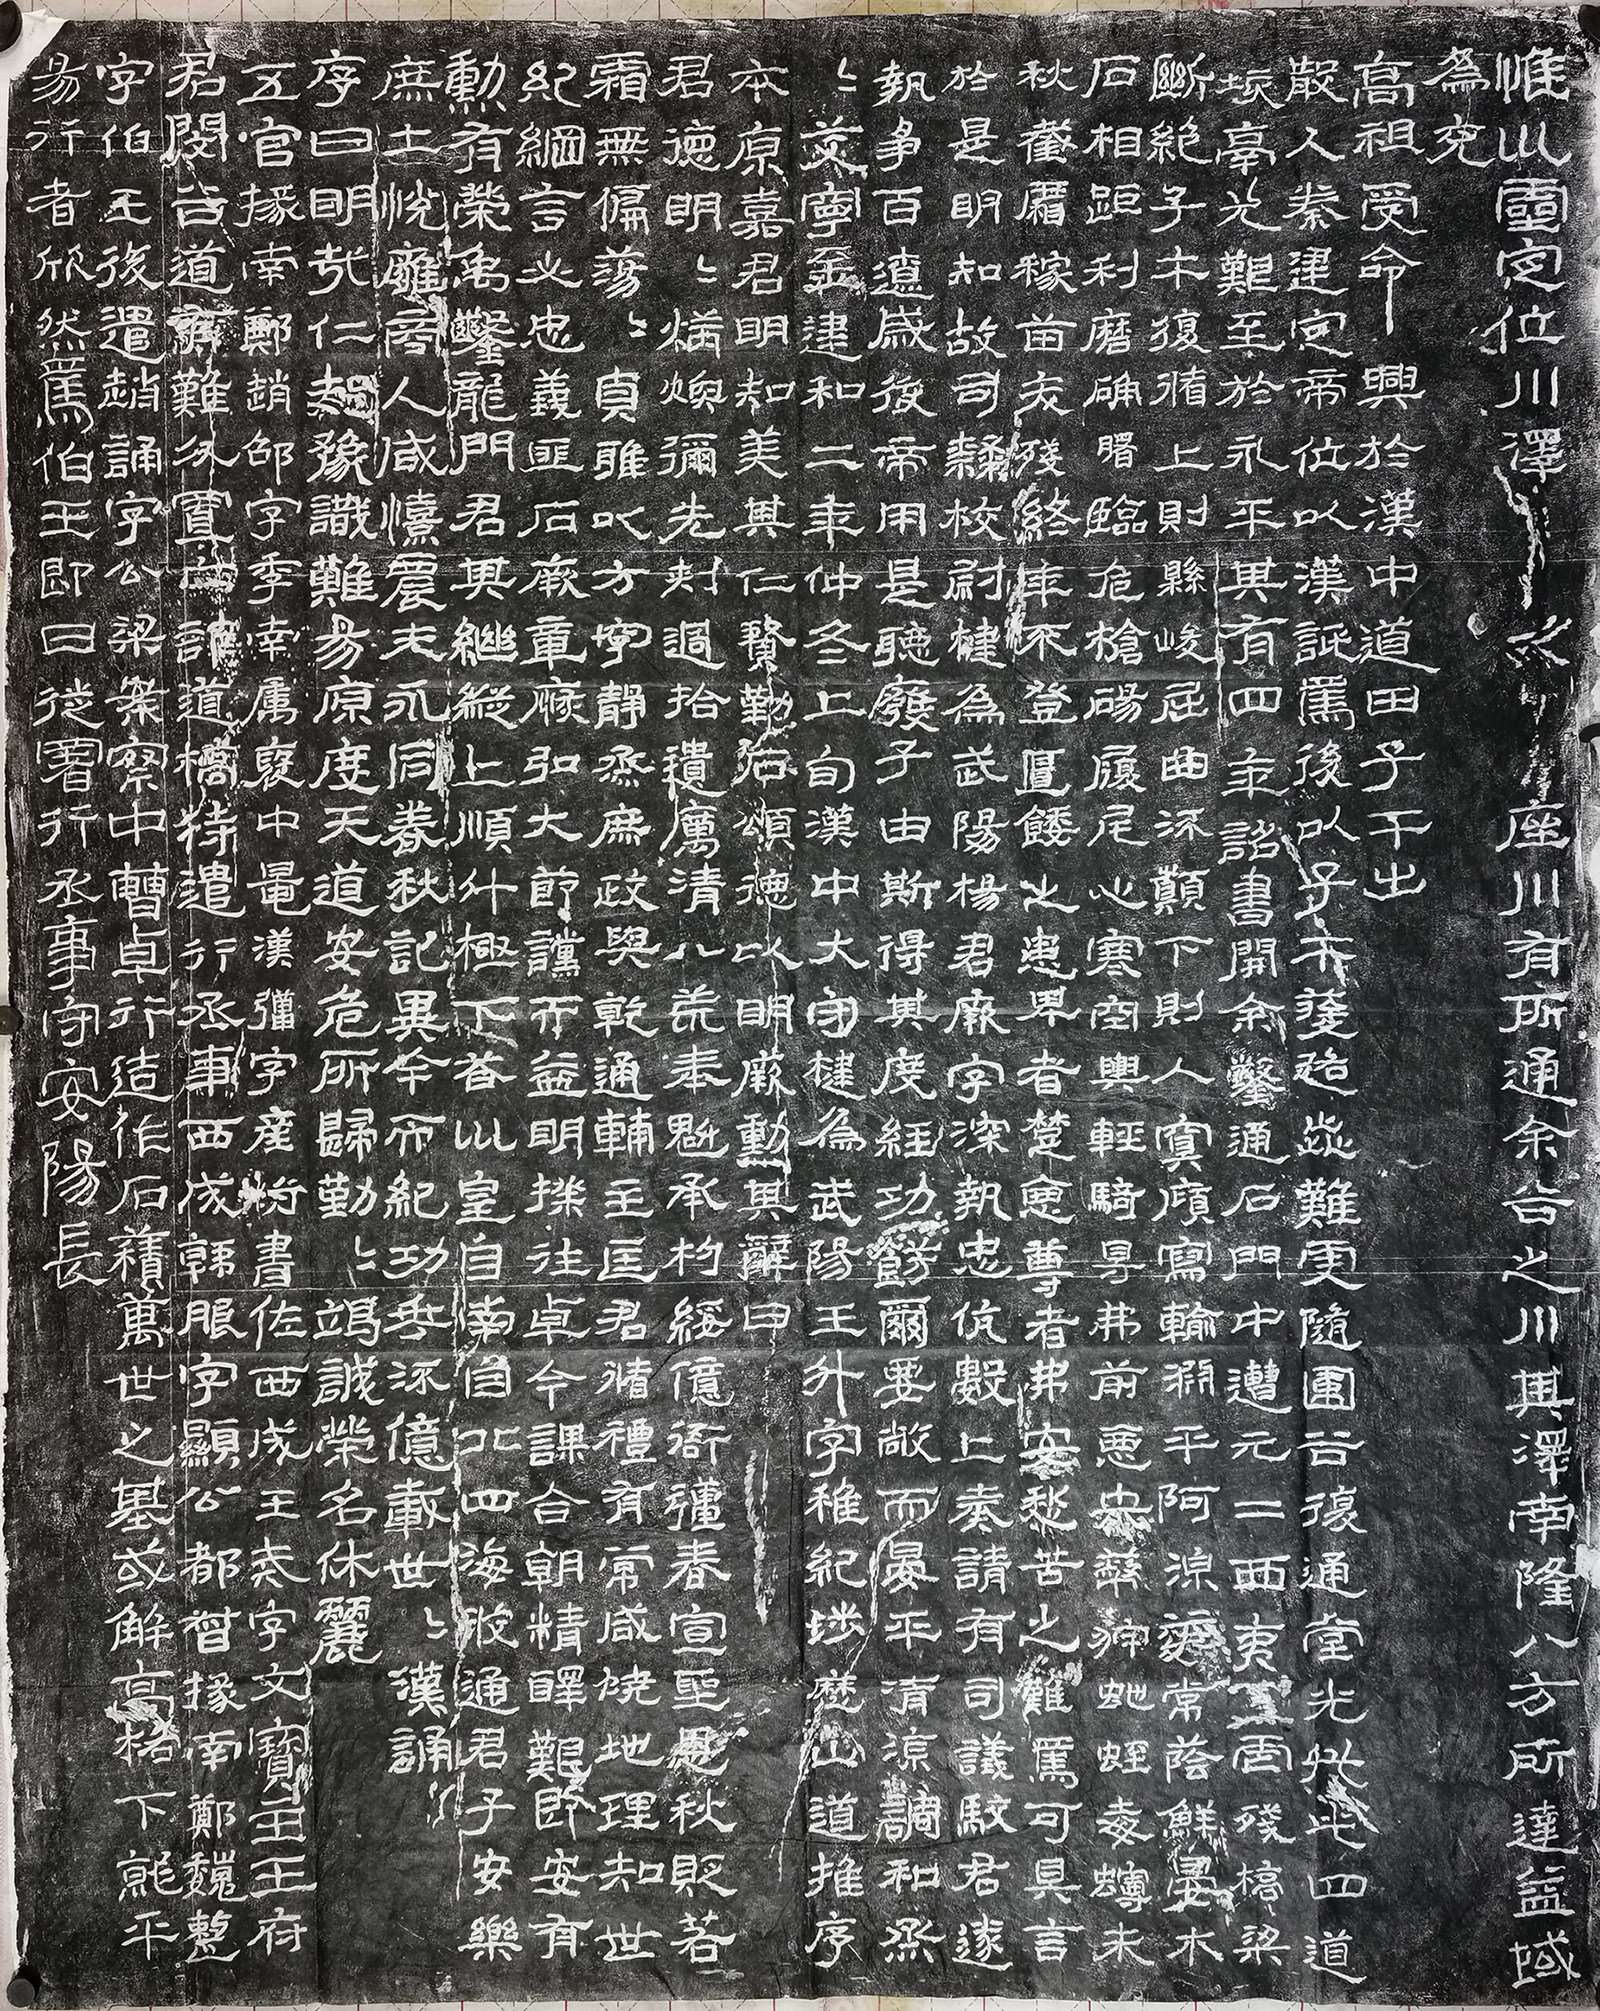 惟巛靈定位川澤川有所通余谷之川其澤南隆八方所達益域
為充
高祖受命興於漢中道由子午出
散入秦建定帝位以漢詆焉後以子午途路澀難更隨圍谷復通堂光凡此四道
垓鬲尤艱至於永平其有四年詔書開余鑿通石門中遭元二西夷虐殘橋梁
斷絕子午復循上則縣峻屈曲流顛下則入冥傾寫輸淵平阿湶泥常蔭鮮晏木
石相距利磨确磐臨危槍碭履尾心寒空輿輕騎㝵弗前惡蟲㡀狩虵蛭毒蟃未
秋截霜稼苗夭殘終年不登匱餧之患卑者楚惡尊者弗安愁苦之難焉可具言
於是明知故司隸校尉楗為武陽楊君厥字深執忠伉數上奏請有司議駮君遂
執爭百遼咸從帝用是聽廢子由斯得其度經功飭爾要敞而晏平清涼調和烝
〻艾寧至建和二年仲冬上旬漢中大守楗為武陽王升字稚紀涉歷山道推序
本原嘉君明知美其仁賢勒石頌德以明厥勳其辭曰
君德明〻炳煥彌光刺過拾遺厲清八荒奉魁承杓綏億衙彊春宣聖恩秋貶若
霜無偏蕩〻貞雅以方寧靜烝庶政與乾通輔主匡君循禮有常咸曉地理知世
紀綱言必忠義匪石厥章恢弘大節讜而益明揆往卓今謀合朝情醳艱即安有
勳有榮禹鑿龍門君其繼縱上順斗極下荅巛皇自南自北四海攸通君子安樂
庶士悅雍商人咸憘農夫永同春秋記異今而紀功垂流億載世〻漢誦
序曰明哉仁知豫識難易原度天道安危所歸勤〻竭誠榮名休麗
五官掾南鄭趙邵字季南屬褒中晁漢彊字產伯書佐西成王戒字文寶主王府
君閔谷道危難分置六部道橋特遣行丞事西成韓朖字顯公都督掾南鄭魏整
字伯玉後遣趙誦字公梁案察中曹卓行造作石積萬世之基或解高格下就平
易行者欣然焉伯玉即日徙署行丞事守安陽長